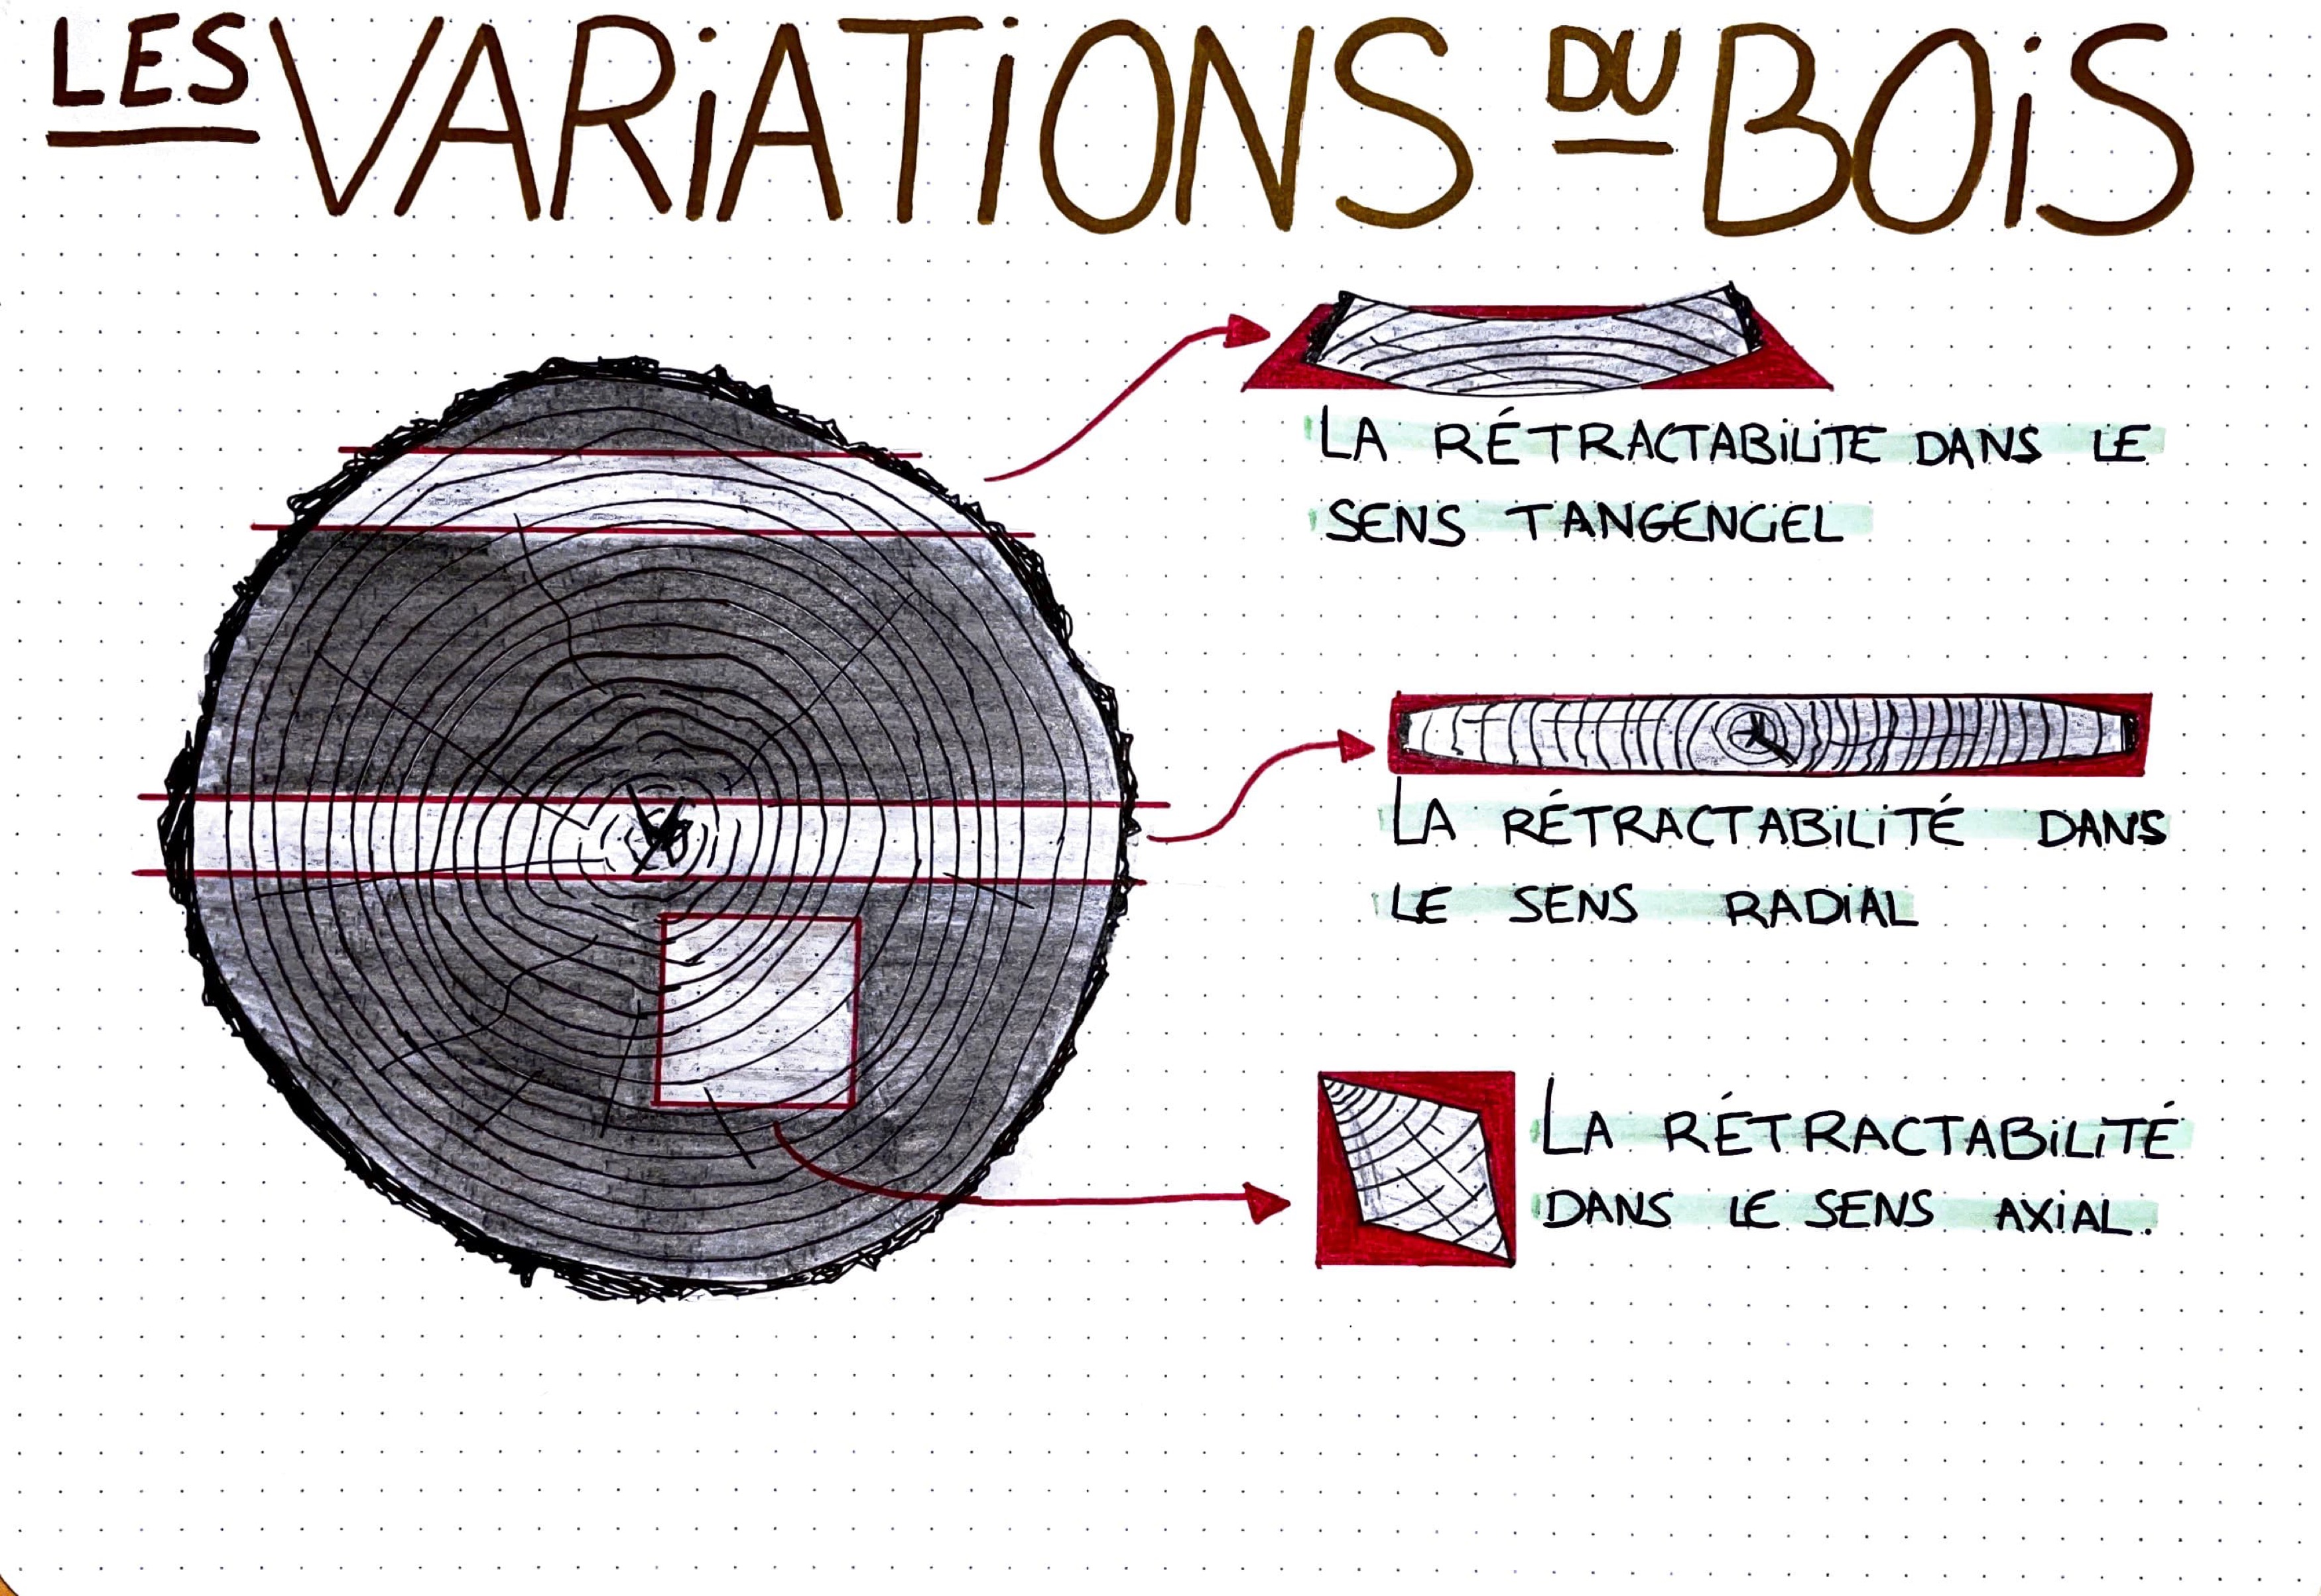 LES VARiATiONS DU BOiS
LA RÉTRACTABiLiTE DANS LE
SENS TANGENCiEL
LA RÉTRACTABiLiTÉ DANS
LE SENS RADiAL
LA RÉTRACTABiLiTÉ
DANS LE SENS AXiAL.